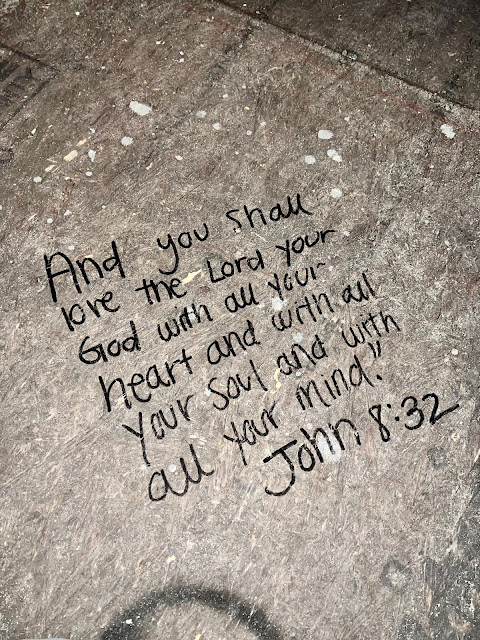 And you shall
love the Lord your
God with all your
heart and with all
your soul and with
all your mind."
John 8:32